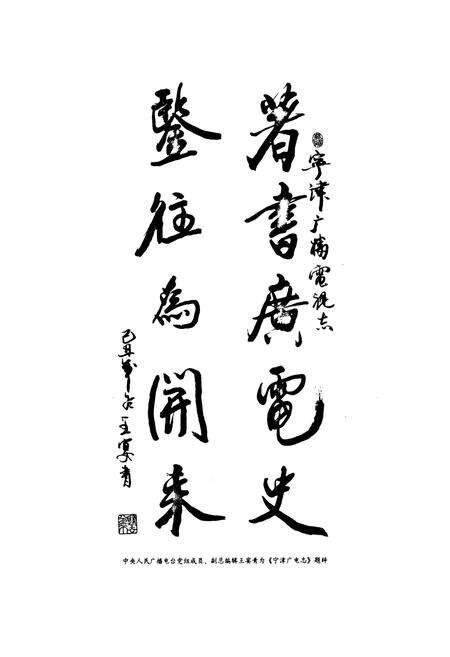 宁津广播電视志
著書廣電史
鑒往為開来
己丑年冬王宴青
中央人民广播电台党组成员、副总编辑王宴青为《宁津广电志》题辞